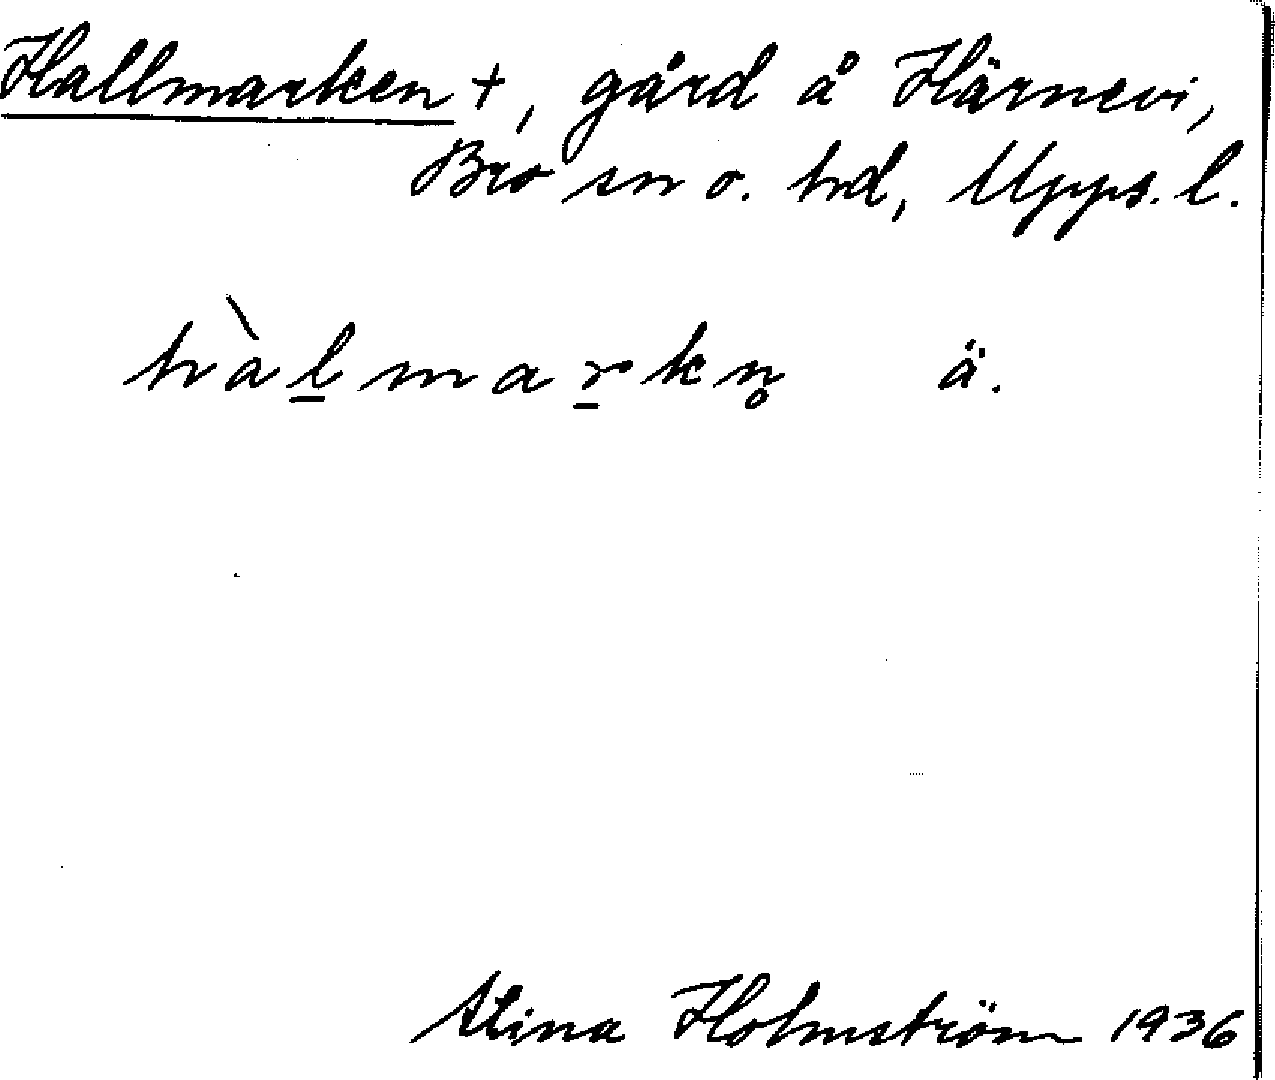 Hallmarken †, gård å Härnevi,
Bro sn o. hd, Upps. l.
hàl̲mar̲kn̥ ä.
Stina Holmström 1936